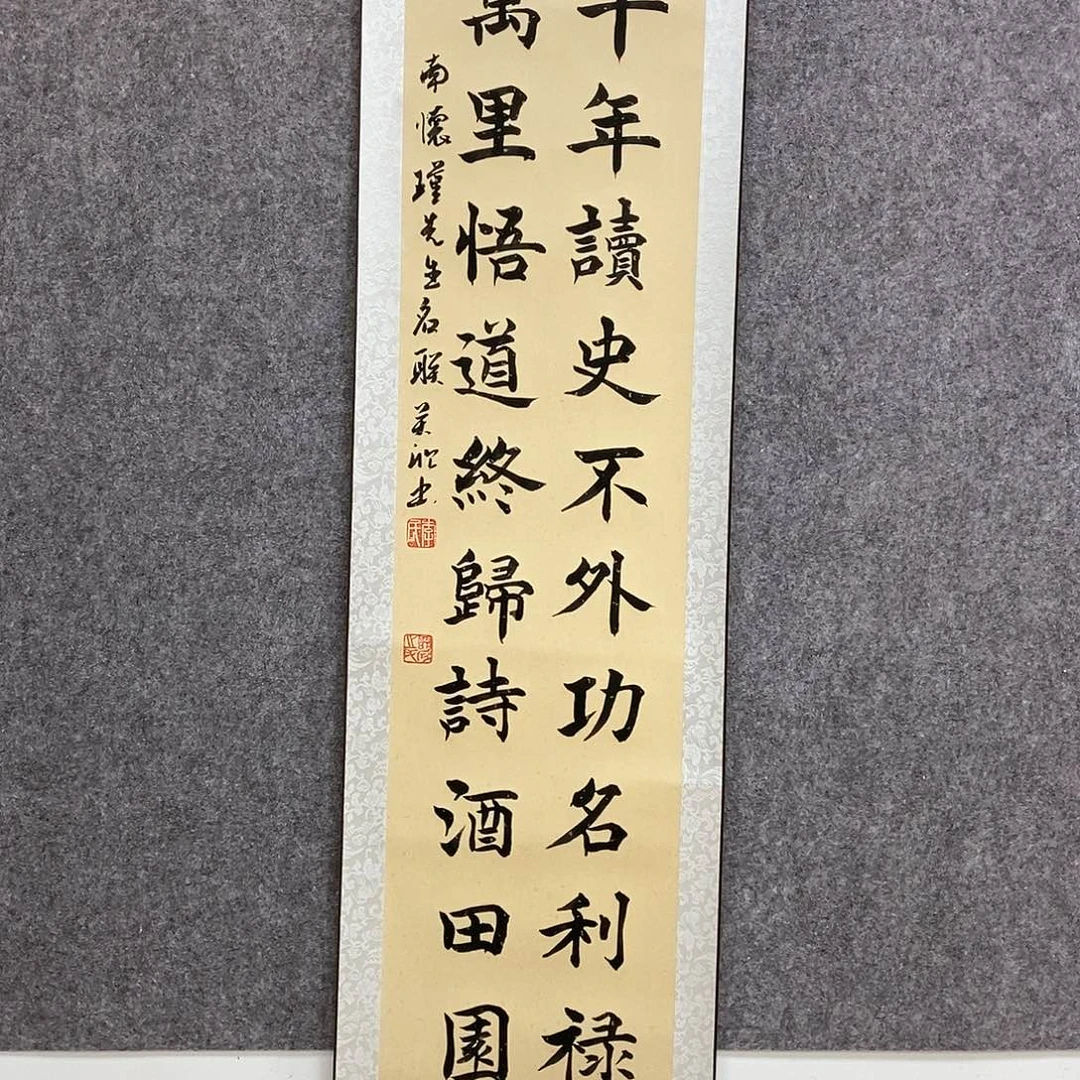 千年讀史不外功名利祿
萬里悟道終歸詩酒田園
南懷瑾先生名联